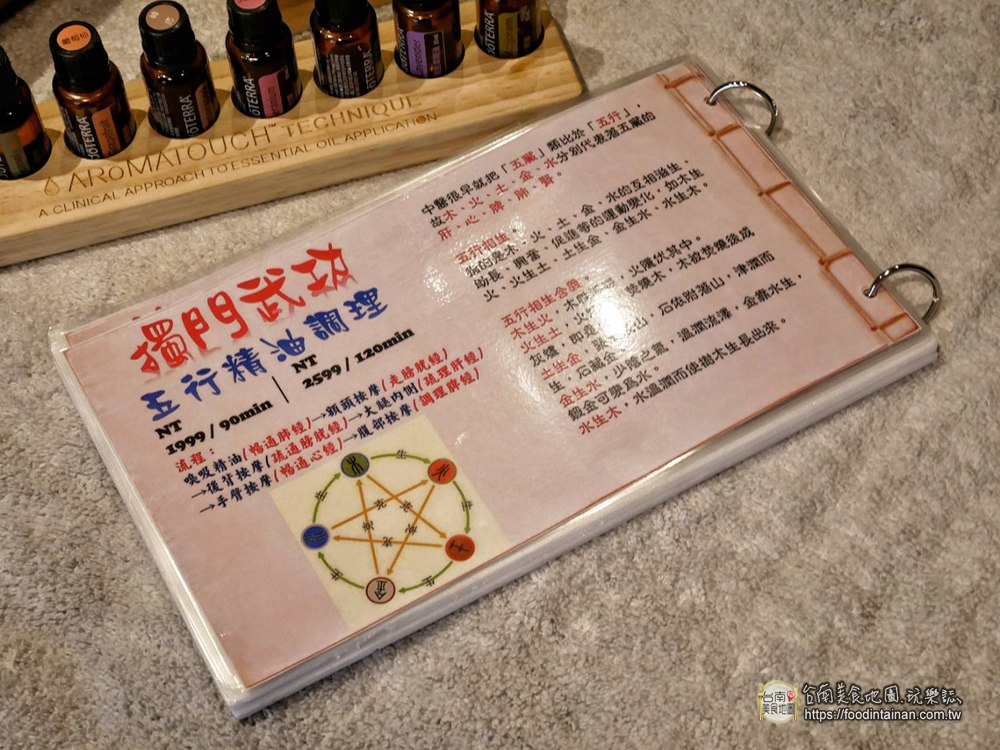 葡萄柚
doTERRA
doTERRA
doTERRA
doTERRA
Lavender
AROMATOUCH TECHNIQUE
A CLINICAL APPROACH TO ESSENTIAL OIL APPLICATION
獨門武功
五行精油調理
NT
1999 / 90min
NT
2599 / 120min
流程：
嗅吸精油(暢通肺經)→額頭按摩(走膀胱經)
→復背按摩(疏通膀胱經)→大腿內側(疏理肝經)
→手臂按摩(暢通心經)→腹部按摩(調理脾經)
生
生
生
生
生
土
金
中醫很早就把「五臟」類比於「五行」，
故木、火、土、金、水分別代表著五臟的
肝、心、脾、肺、腎。
五行相生
指的是木、火、土、金、水的互相滋生，
助長、興奮、促進等的運動變化，如木生
火，火生土，土生金，金生水，水生木。
五行相生含義
木生火，火隱伏其中。
火生土，焚燒木，木被焚燒後成
灰燼，即是
土生金，石依附著山，津潤而
生，石
金生水，少陰之氣，溫潤流澤，金靠水生，
鎔金可變為水。
水生木，水溫潤而使樹木生長出來。
台南
美食地圖
台南美食地圖.玩樂誌
https://foodintainan.com.tw